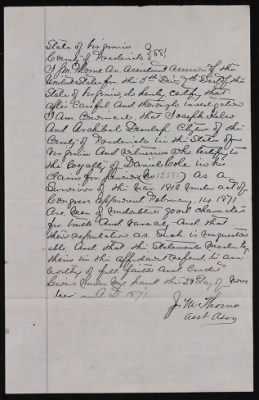 State of Virginia }
County of } SS,
I J. M. Thorne An Assistant Assessor of the
United States for the 5th Div, 7th Dist of the
State of Virginia, do hereby certify that
after Careful and thorough investigation
I am Convinced that Joseph
And Archibel Dunlap Citizens of the
County of in the State of
Virginia And witnesses who testify to
the loyalty of Daniel Cole in his
Claim for Pension (No ) As a
Survivor of the War 1812 under act of
Congress Approved February 14 1871
Are Men of undoubted good Character
for truth And Varacity And that
their reputation as Such is unquestion
able And that the Statements Made by
them in the affidavit referred to are
worthy of full faith And Credit
Given under My hand this 29 day of Novem
ber A.D. 1871
J. M. Thorne
Asst Assr